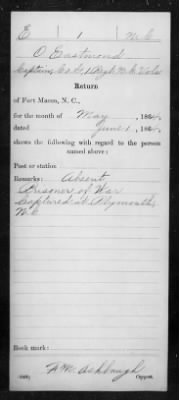 E | 1 | N.C.
O Eastmond
Captain, Co G, 1 Regt N.C. Vols
Return
of Fort Macon, N. C.,
for the month of May, 1864.
dated June 1, 1864.
shows the following with regard to the person
named above:
Post or station
Remarks: Absent
Prisoner of War
Captured at Plymouth
N.C.
Book mark:
A M Ashbaugh
Copyist.